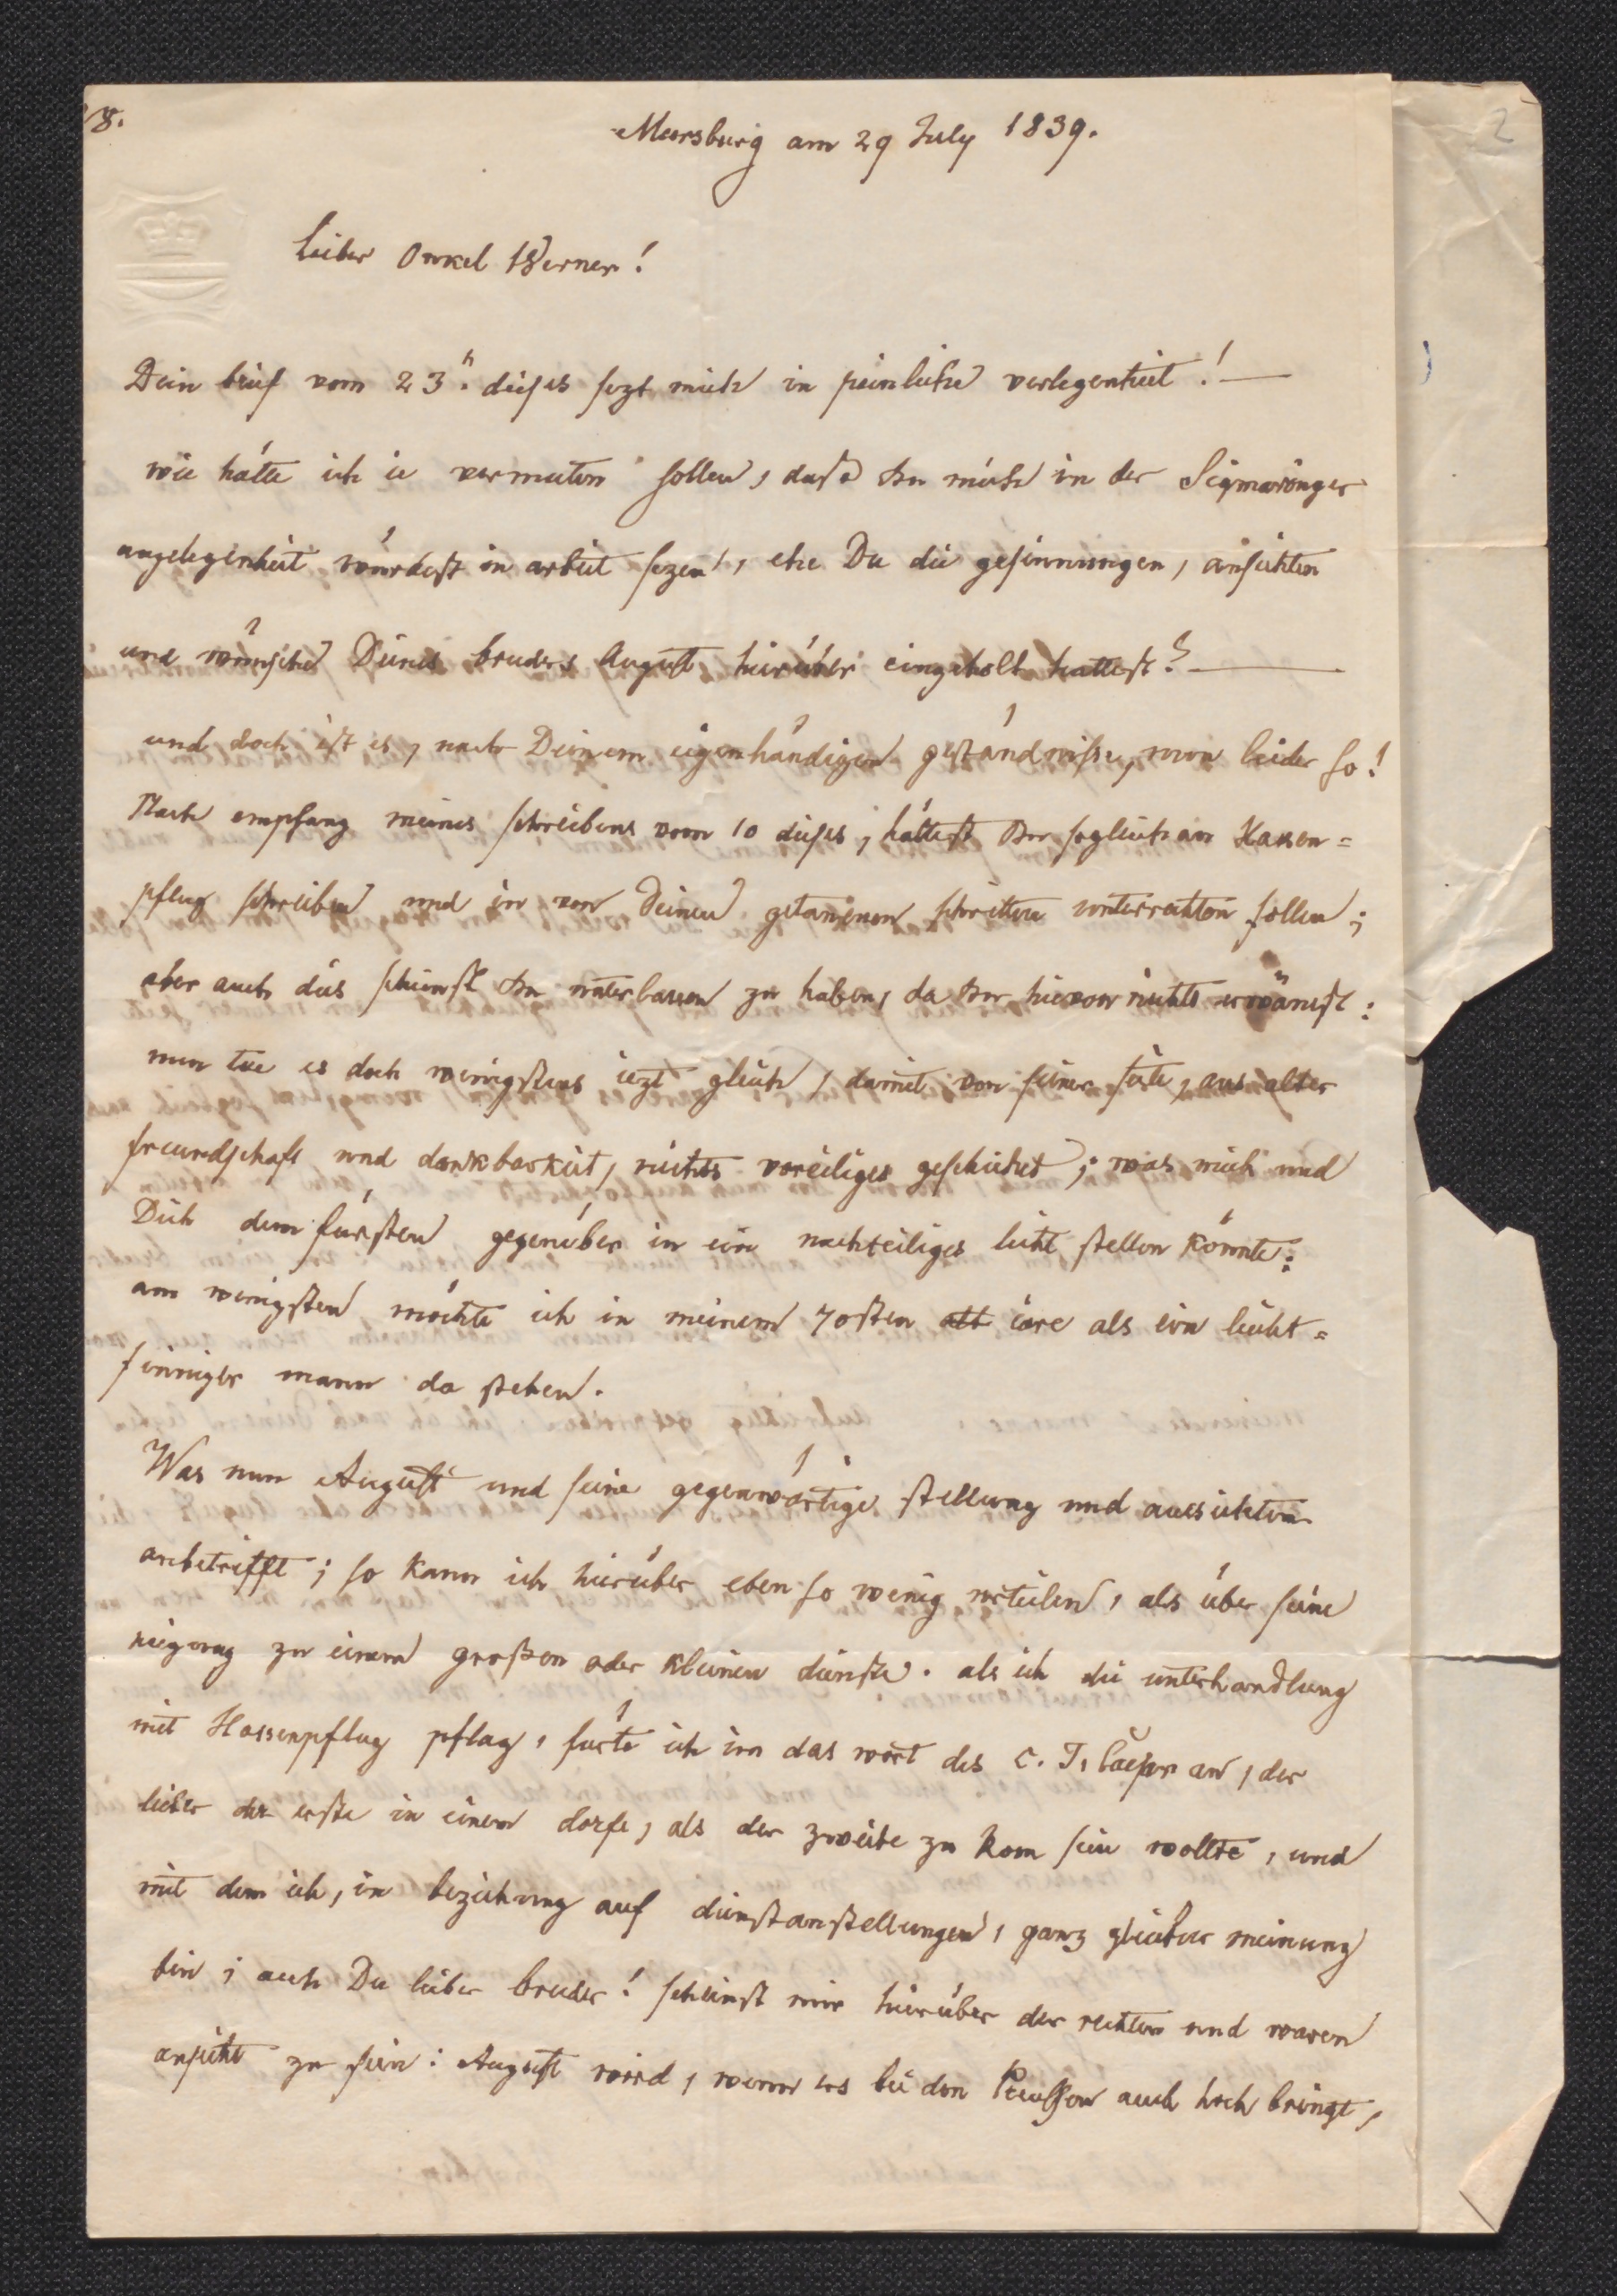 18.
Meersburg am 29 July 1839.
2
Lieber Onkel Werner!
Dein brief vom 23.n dieses sezt mich in peinliche verlegenheit! —
wie hätte ich ie vermuten sollen, dass Du mich in der Sigmaringer
angelegenheit würdest in arbeit sezen, ehe Du die gesinnungen, ansichten
und wünsche Deines bruders August hierüber eingeholt hattest? —
und doch ist es, nach Deinem eigenhändigen geständnisse, nun leider so!
Nach empfang meines schreibens vom 10 dieses, hättest Du sogleich an Hassen=
pflug schreiben und in von Deinen getanenen schritten unterrichten sollen;
aber auch dies scheinst Du unterlassen zu haben, da Du hievon nichts erwänest:
nun tue es doch wenigstens iezt gleich, damit von seiner seite, aus alter
freundschaft und dankbarkeit, nichts voreiliges geschiehet; was mich und
Dich dem fürsten gegenüber in ein nachteiliges licht stellen könnte:
am wenigsten möchte ich in meinem 70sten alt iare als ein leicht=
sinniger mann da stehen.
Was nun August und seine gegenwärtige stellung und aussichten
anbetrifft; so kann ich hierüber eben so wenig urteilen, als über seine
neigung zu einem großen oder kleinen dienste. als ich die unterhandlung
mit Hassenpflug pflag, fürte ich im das wort des C. J. Caesar an, der
lieber der erste in einem dorfe, als der zweite zu Rom sein wollte, und
mit dem ich, in beziehung auf dienstanstellungen, ganz gleicher meinung
bin; auch Du lieber bruder! scheinst mir hierüber der rechten und waren
ansicht zu sein: August wird, wenn ers bei den Preussen auch hoch bringt,